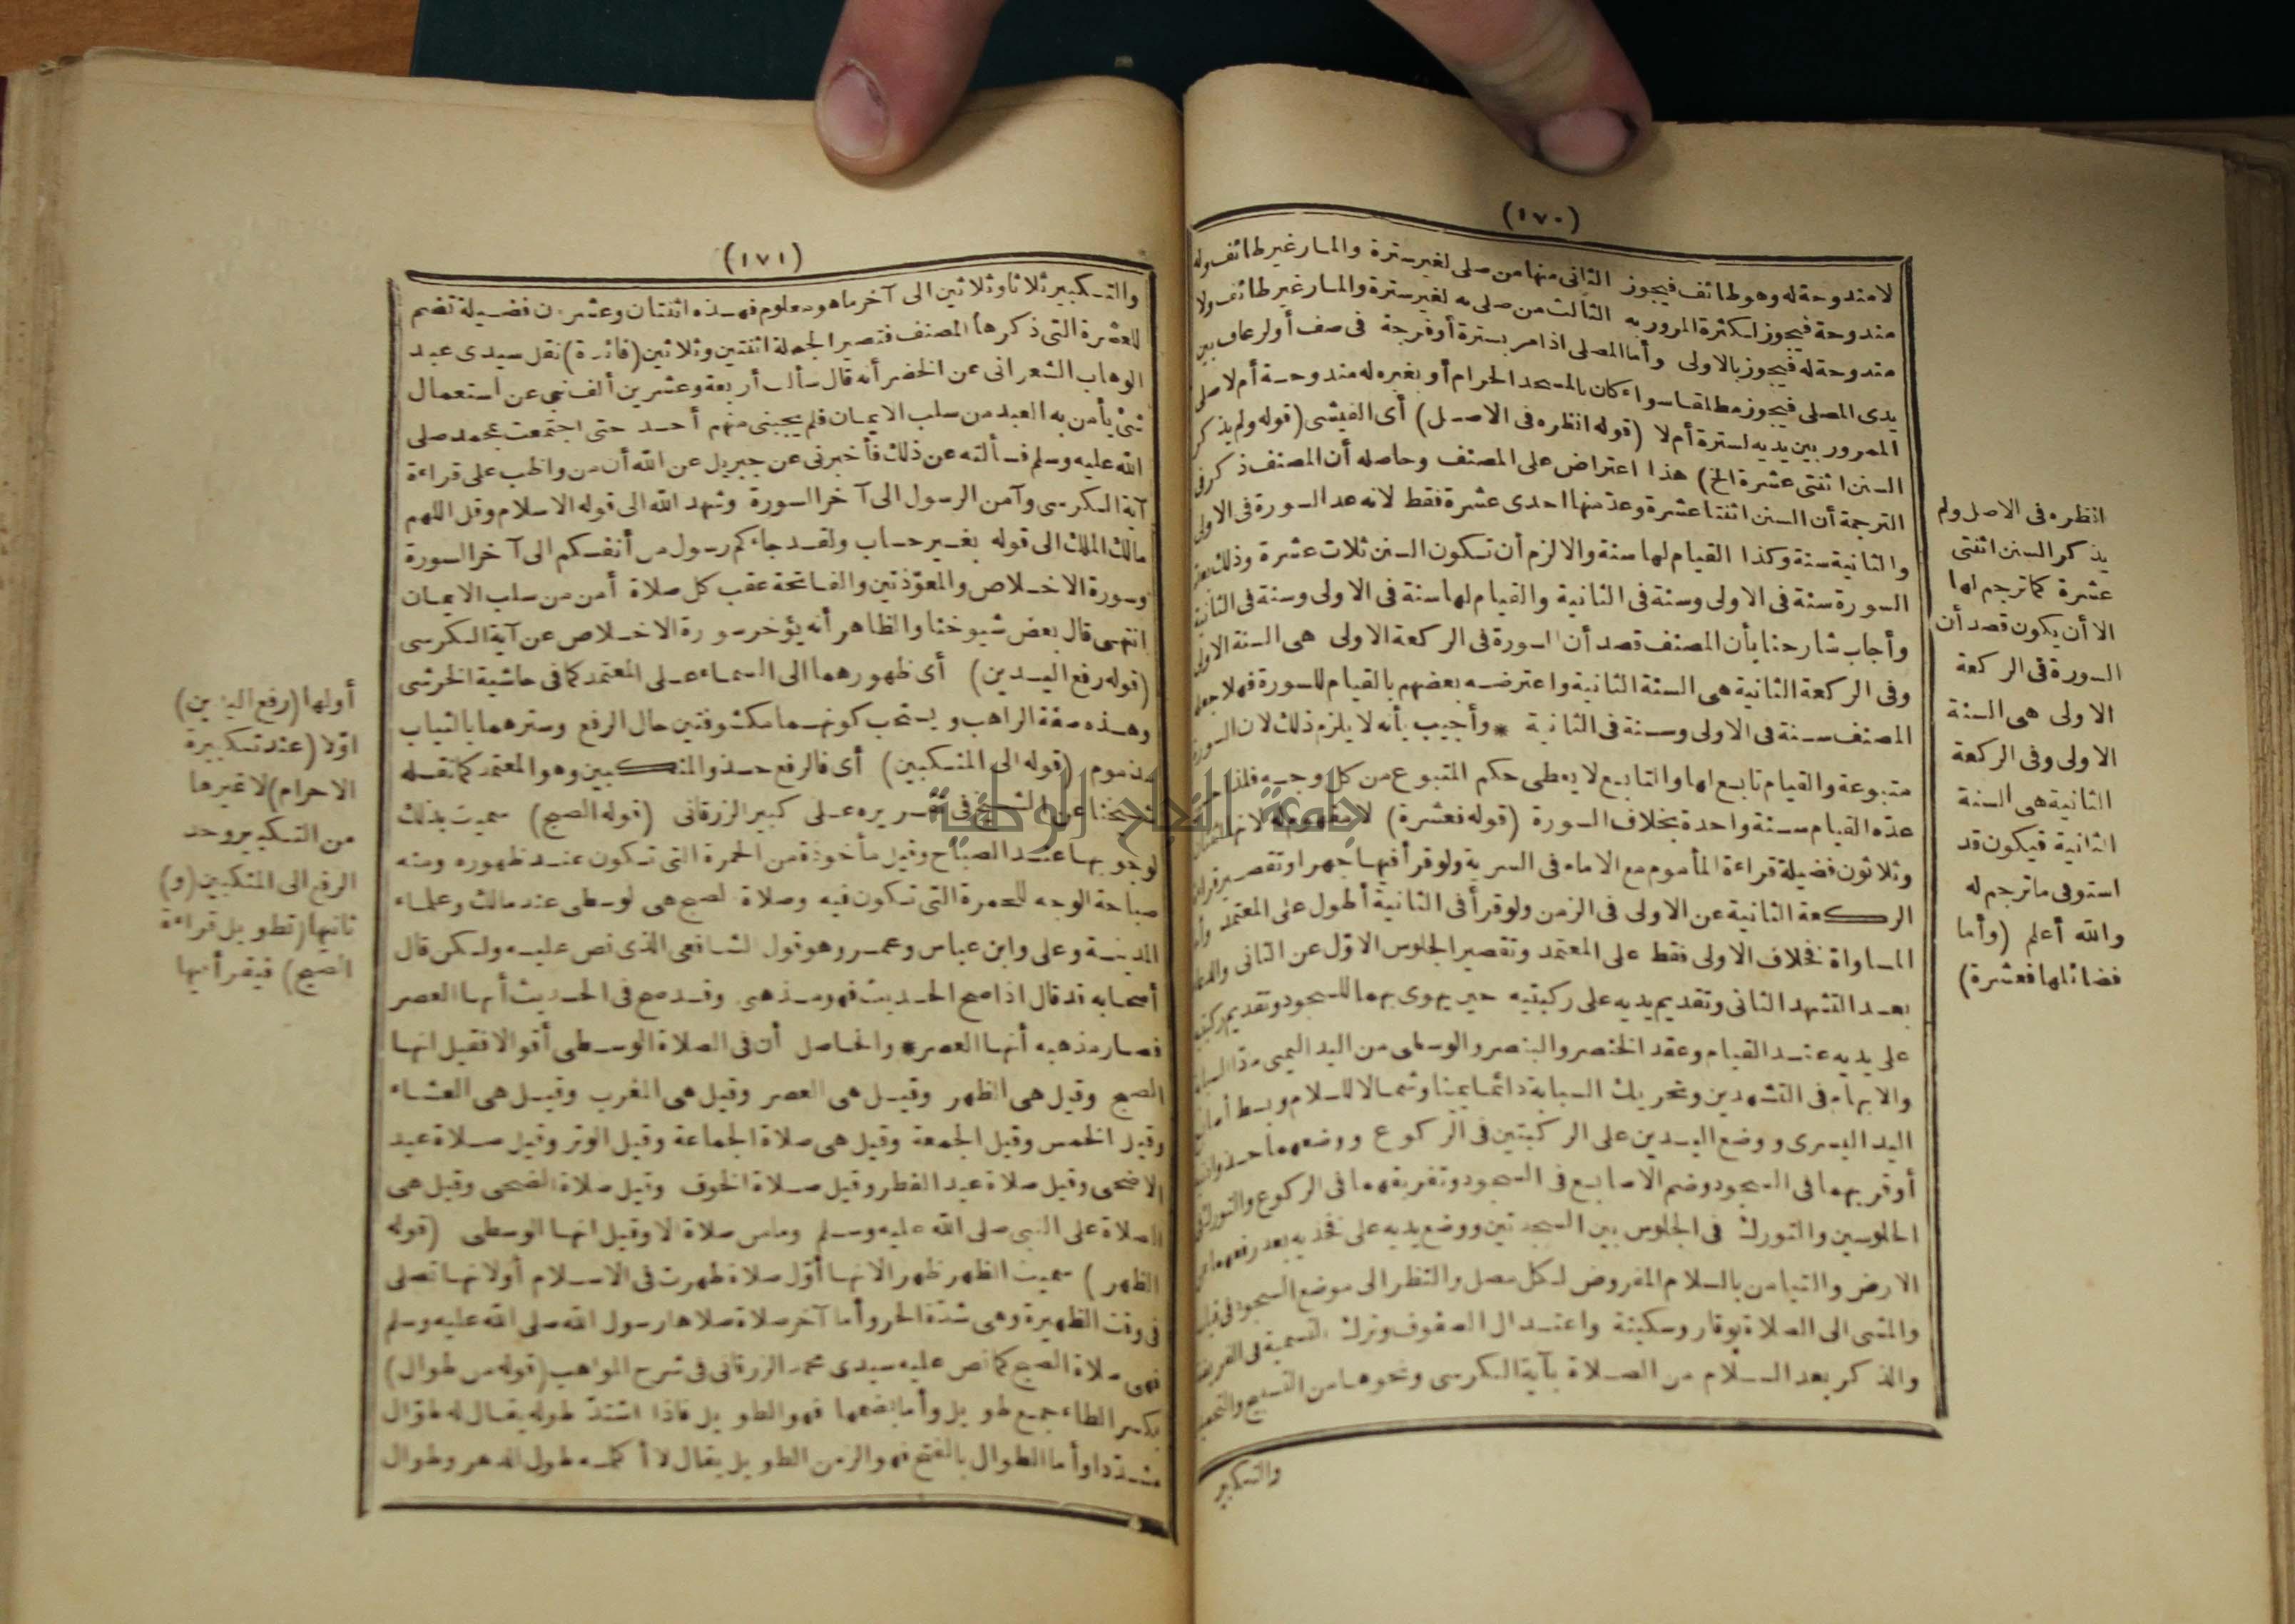 (١٧٠)
لا مندوحة له وهو طائف فيجوز الثانى منها من صلى لغير سترة والمار غير طائف وله
مندوحة فيجوز لكثرة المرور به الثالث من صلى به لغير سترة والمار غير طائف ولا
مندوحة له فيجوز بالاولى وأما المصلى اذا مر بسترة أو فرجة فى صف أو لرعاف بين
يدى المصلى فيجوز مطلقا سواء كان بالمسجد الحرام أو بغيره له مندوحة أم لا صلى
الممرور بين يديه لسترة أم لا (قوله انظره فى الاصل) أى الفيشى (قوله ولم يذكر
السنن اثنتى عشرة الخ) هذا اعتراض على المصنف وحاصله أن المصنف ذكر فى
الترجمة أن السنن اثنتا عشرة وعد منها احدى عشرة فقط لانه عد السورة فى الاولى
والثانية سنة وكذا القيام لها سنة والا لزم أن تكون السنن ثلاث عشرة وذلك بعد
السورة سنة فى الاولى وسنة فى الثانية والقيام لها سنة فى الاولى وسنة فى الثانية
وأجاب شارحنا بأن المصنف قصد أن السورة فى الركعة الاولى هى السنة الاولى
وفى الركعة الثانية هى السنة الثانية واعترضه بعضهم بالقيام للسورة فهلا جعله
المصنف سنة فى الاولى وسنة فى الثانية * وأجيب بأنه لا يلزم ذلك لان السورة
متبوعة والقيام تابع لها والتابع لا يعطى حكم المتبوع من كل وجه فلذا
عده القيام سنة واحدة بخلاف السورة (قوله فعشرة) لا مفهوم له لانها اثنتان
وثلاثون فضيلة قراءة المأموم مع الامام فى السرية ولو قرأ فيها جهرا وتقصير قراءة
الركعة الثانية عن الاولى فى الزمن ولو قرأ فى الثانية أطول على المعتمد وأما
المساواة فخلاف الاولى فقط على المعتمد وتقصير الجلوس الاول عن الثانى والدعاء
بعد التشهد الثانى وتقديم يديه على ركبتيه حين يهوى بهما للسجود وتقديم ركبتيه
على يديه عند القيام وعقد الخنصر والبنصر والوسطى من اليد اليمنى مادا السبابة
والابهام فى التشهدين وتحريك السبابة دائما يمينا وشمالا للسلام وبسط أصابع
اليد اليسرى ووضع اليدين على الركبتين فى الركوع ووضعهما حذو أذنيه
أو قربهما فى السجود وضم الاصابع فى السجود وتفريقهما فى الركوع والتورك فى
الجلوسين والتورك فى الجلوس بين السجدتين ووضع يديه على فخذيه بعد رفعهما من
الارض والتيامن بالسلام المفروض لكل مصل والنظر الى موضع السجود فى قيامه
والمشى الى الصلاة بوقار وسكينة واعتدال الصفوف وترك التسمية فى الفريضة
والذكر بعد السلام من الصلاة بآية الكرسى ونحوها من التسبيح والتحميد
والتكبير
انظره فى الاصل ولم
يذكر السنن اثنتى
عشرة كما ترجم لها
الا أن يكون قصد أن
السورة فى الركعة
الاولى هى السنة
الاولى وفى الركعة
الثانية هى السنة
الثانية فيكون قد
استوفى ما ترجم له
والله أعلم (وأما
فضائلها فعشرة)
(١٧١)
والتكبير ثلاثا وثلاثين الى آخر ما هو معلوم فهذه اثنتان وعشرون فضيلة تضم
للعشرة التى ذكرها المصنف فتصير الجملة اثنتين وثلاثين (فائدة) نقل سيدى عبد
الوهاب الشعرانى عن الخضر أنه قال سألت أربعة وعشرين ألف نبى عن استعمال
شئ يأمن به العبد من سلب الايمان فلم يجبنى منهم أحد حتى اجتمعت بمحمد صلى
الله عليه وسلم فسألته عن ذلك فأخبرنى عن جبريل عن الله أن من واظب على قراءة
آية الكرسى وآمن الرسول الى آخر السورة وشهد الله الى قوله الاسلام وقل اللهم
مالك الملك الى قوله بغير حساب ولقد جاءكم رسول من أنفسكم الى آخر السورة
وسورة الاخلاص والمعوّذتين والفاتحة عقب كل صلاة أمن من سلب الايمان
انتهى قال بعض شيوخنا والظاهر أنه يؤخر سورة الاخلاص عن آية الكرسى
(قوله رفع اليدين) أى ظهورهما الى السماء على المعتمد كما فى حاشية الخرشى
وهذه صفة الراهب ويستحب كونهما مكشوفتين حال الرفع وسترهما بالثياب
مذموم (قوله الى المنكبين) أى فالرفع حذو المنكبين وهو المعتمد كما نقله
شيخنا عن الشيخ فى تقريره على كبير الزرقانى (قوله الصبح) سميت بذلك
لوجوبها عند الصباح وقيل مأخوذة من الحمرة التى تكون عند ظهوره ومنه
صباحة الوجه للحمرة التى تكون فيه وصلاة الصبح هى الوسطى عند مالك وعلماء
المدينة وعلى وابن عباس وعمر وهو قول الشافعى الذى نص عليه ولكن قال
أصحابه قد قال اذا صح الحديث فهو مذهبى وقد صح فى الحديث أنها العصر
فصار مذهبه أنها العصر * والحاصل أن فى الصلاة الوسطى أقوالا فقيل انها
الصبح وقيل هى الظهر وقيل هى العصر وقيل هى المغرب وقيل هى العشاء
وقيل الخمس وقيل الجمعة وقيل هى صلاة الجماعة وقيل الوتر وقيل صلاة عيد
الاضحى وقيل صلاة عيد الفطر وقيل صلاة الخوف وقيل صلاة الضحى وقيل هى
الصلاة على النبى صلى الله عليه وسلم وما من صلاة الا وقيل انها الوسطى (قوله
الظهر) سميت الظهر ظهرا لانها أوّل صلاة ظهرت فى الاسلام أو لانها تصلى
فى وقت الظهيرة وهى شدّة الحر وأما آخر صلاة صلاها رسول الله صلى الله عليه وسلم
فهى صلاة الصبح كما نص عليه سيدى محمد الزرقانى فى شرح المواهب (قوله من طوال)
بكسر الطاء جمع طويل وأما بضمها فهو الطويل فاذا اشتدّ طوله يقال له طوّال
مشدّدا وأما الطوال بالفتح فهو الزمن الطويل يقال لا أكلمه طول الدهر وطوال
أولها (رفع اليدين)
اوّلا (عند تكبيرة
الاحرام) لا غيرها
من التكبير وحد
الرفع الى المنكبين (و)
ثانيها (تطويل قراءة
الصبح) فيقرأ فيها
جامعة النجاح الوطنية